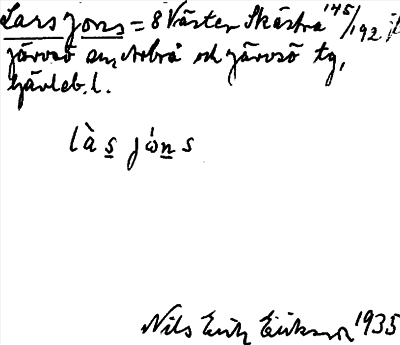 Lars Jons = 8 Väster Skästra 145/192 i
Järvsö sn, Arbrå och Järvsö tg,
Gävleb. l.
là s jo n s
Nils Erik Eriksson 1935